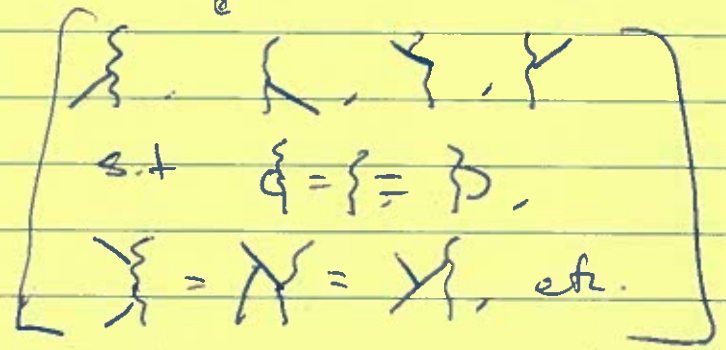 s.t = = ,
= = , etc.